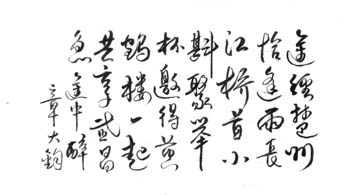 途經楚州
恰逢雨長
江橋首小
斟聚举
杯邀得黄
鹤楼一起
共享武昌
魚途中醉
章大钧